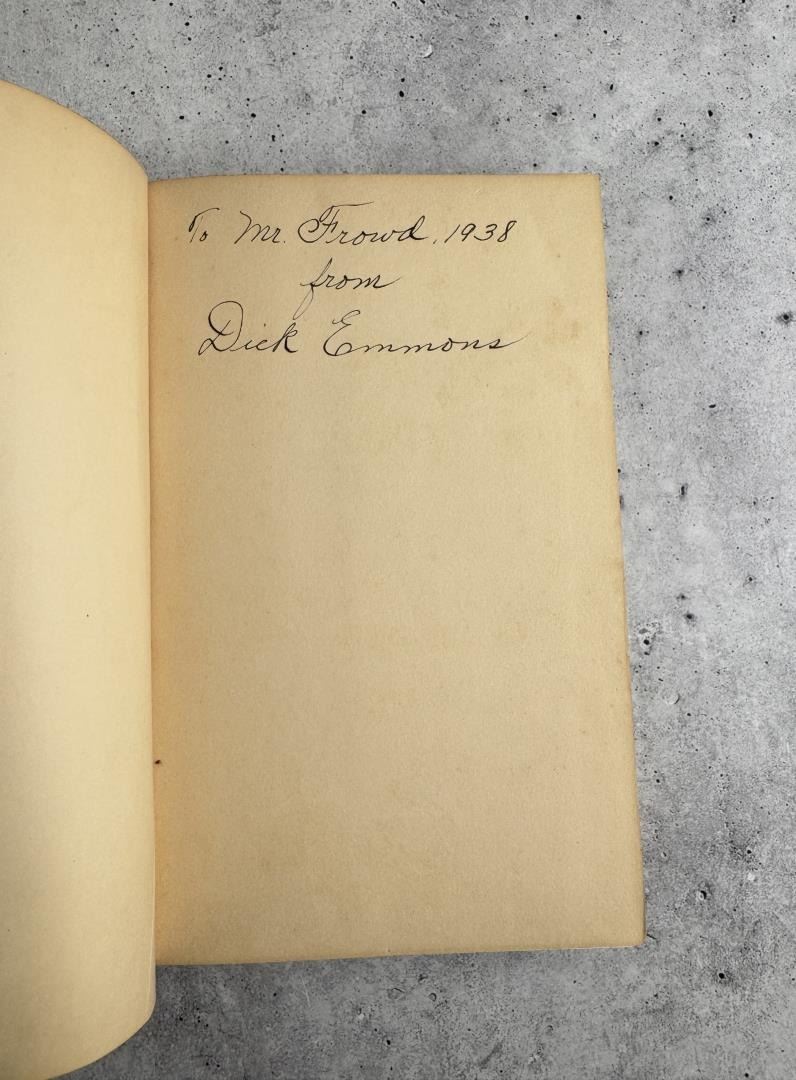 To Mr. Frowd, 1938
from
Dick Emmons